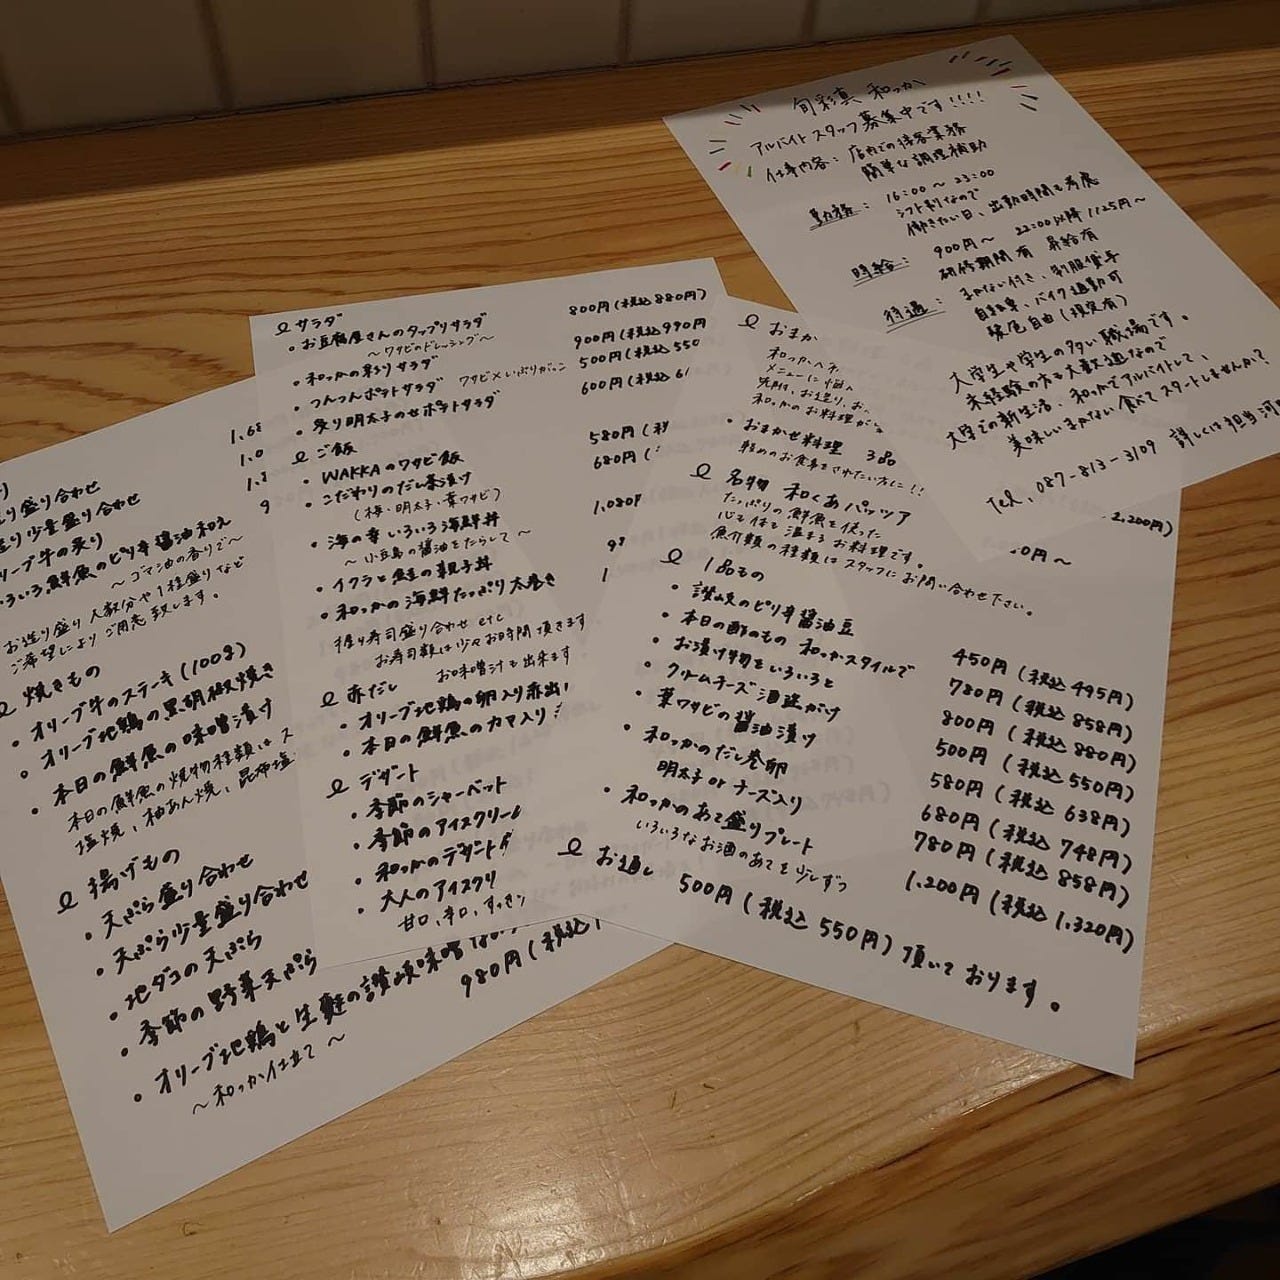 旬彩真 和っか
アルバイトスタッフ募集中です!!!!
仕事内容: 店内での接客業務
簡単な調理補助
勤務: 16:00〜23:00
シフト制なので
働きたい日、出勤時間も考慮
時給: 900円〜 22:00以降1125円〜
研修期間有 昇給有
待遇: まかない付き、制服貸与
自転車、バイク通勤可
髪色自由(規定有)
大学生や学生の多い職場です。
未経験の方も大歓迎なので
大学での新生活、和っかでアルバイトして、
美味しいまかない食べてスタートしませんか?
Tel、087-813-3109 詳しくは担当 河
サラダ
・お豆腐屋さんのタップリサラダ 800円(税込880円)
〜ワサビのドレッシング〜
・和っかの彩りサラダ 900円(税込990円
・つんつんポテトサラダ ワサビ×いぶりがっこ 500円(税込550
・炙り明太子のせポテトサラダ 600円(税込6
ご飯
・WAKKAのワサビ飯 580円(税
・こだわりのだし茶漬け 680円(
(梅・明太子・葉ワサビ)
・海の幸いろいろ海鮮丼 1,080円
〜小豆島の醤油をたらして〜
・イクラと鮭の親子丼
・和っかの海鮮たっぷり太巻き
握り寿司盛り合わせ etc
お寿司類は少々お時間頂きます
赤だし お味噌汁も出来ます
・オリーブ地鶏の卵入り赤出
・本日の鮮魚のカマ入り
デザート
・季節のシャーベット
・季節のアイスクリーム
・和っかのデザート
・大人のアイスクリ
甘口、辛口、すっきり
おまか
メニューに悩
先附、お造り、お
和っかのお料理が
・おまかせ料理 3品
軽めのお食事をされたい方に!!
名物 和くあパッツア
たっぷりの鮮魚を使った
心も体も温まるお料理です。
魚介類の種類はスタッフにお問い合わせ下さい。
2,200円)
0円〜
1品もの
・讃岐のピリ辛醤油豆 450円(税込495円)
・本日の酢のもの 和っかスタイルで 780円(税込858円)
・お漬け物をいろいろと 800円(税込880円)
・クリームチーズ酒盗がけ 500円(税込550円)
・葉ワサビの醤油漬け 580円(税込638円)
・和っかのだし巻卵 680円(税込748円)
明太子orチーズ入り 780円(税込858円)
・和っかのあて盛りプレート 1,200円(税込1,320円)
いろいろなお酒のあてを少しずつ
お通し 500円(税込550円)頂いております。
り盛り合わせ
り少量盛り合わせ
リーブ牛の炙り
いろいろ鮮魚のピリ辛醤油和え
〜ゴマ油の香りで〜
お造り盛り人数分や1種盛りなど
ご希望によりご用意致します。
焼きもの
・オリーブ牛のステーキ(100g)
・オリーブ地鶏の黒胡椒焼き
・本日の鮮魚の味噌漬け
本日の鮮魚の焼物種類はス
塩焼、柚あん焼、昆布塩
揚げもの
・天ぷら盛り合わせ
・天ぷら少量盛り合わせ
・地ダコの天ぷら
・季節の野菜天ぷら
・オリーブ地鶏と生麩の讃岐味噌
〜和っか仕立て〜 980円(税込1